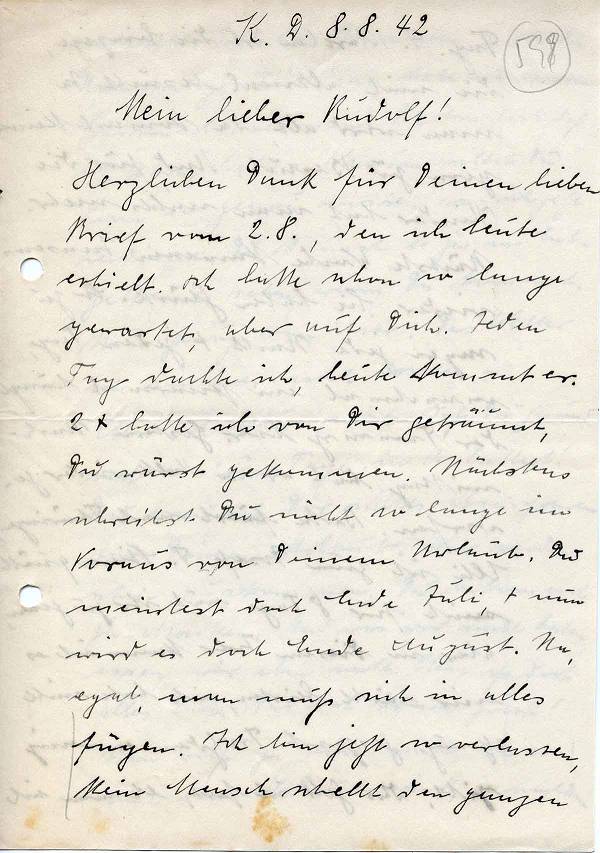 K. D. 8. 8. 42
598
Mein lieber Rudolf!
Herzlichen Dank für Deinen lieben
Brief vom 2.8., den ich heute
erhielt. Ich hatte schon so lange
gewartet, aber auf Dich. Jeden
Tag dachte ich, heute kommt er.
2 x hatte ich von Dir geträumt,
Du wärst gekommen. Nächstens
schreibst Du nicht so lange im
Voraus von Deinem Urlaub. Du
meintest doch Ende Juli, + nun
wird es doch Ende August. Na,
egal, man muß sich in alles
fügen. Ich bin jetzt so verlassen,
kein Mensch schellt den ganzen